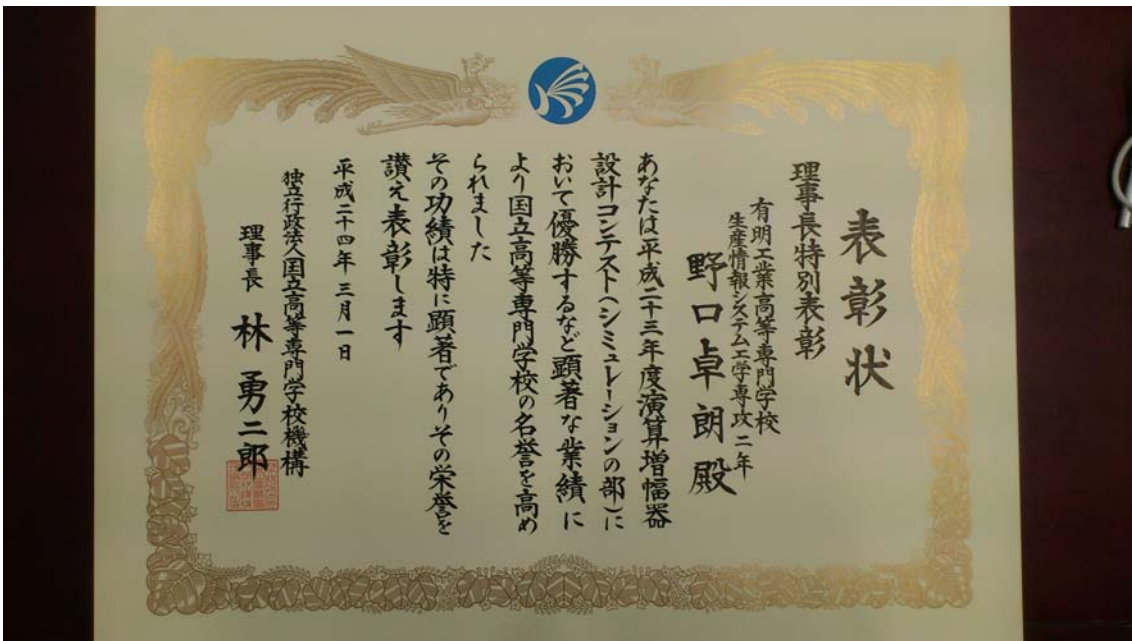 表彰状
理事長特別表彰
有明工業高等専門学校
生産情報システム工学専攻二年
野口卓朗殿
あなたは平成二十三年度演算増幅器
設計コンテスト(シミュレーションの部)に
おいて優勝するなど顕著な業績に
より国立高等専門学校の名誉を高め
られました
その功績は特に顕著でありその栄誉を
讃え表彰します
平成二十四年三月一日
独立行政法人国立高等専門学校機構
理事長 林勇二郎